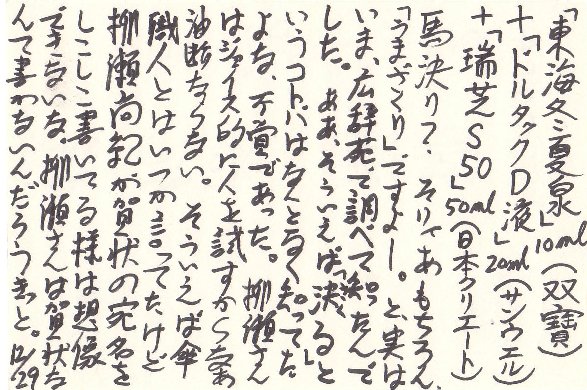 「東海冬夏泉」10ml(双寶)
+「ドルタックD液」20ml(サンウエル)
+「瑞芝S50」50ml(日本クリエート)
馬決りって、そりゃあもちろん
「うまざくり」ですよー。と、実は
いま、広辞苑で調べて知ったんで
した。ああ、そういえば「決(さく)る」と
いうコトバはなんとなく知ってた
よな、不覚であった。柳瀬さん
はジョイス的に人を試すからなあ
油断ならない。そういえば傘
職人とはいつか言ってたけど
柳瀬尚紀が賀状の宛名を
しこしこ書いてる様は想像
できないな。柳瀬さんは賀状な
んて書かないんだろうきっと。12/29